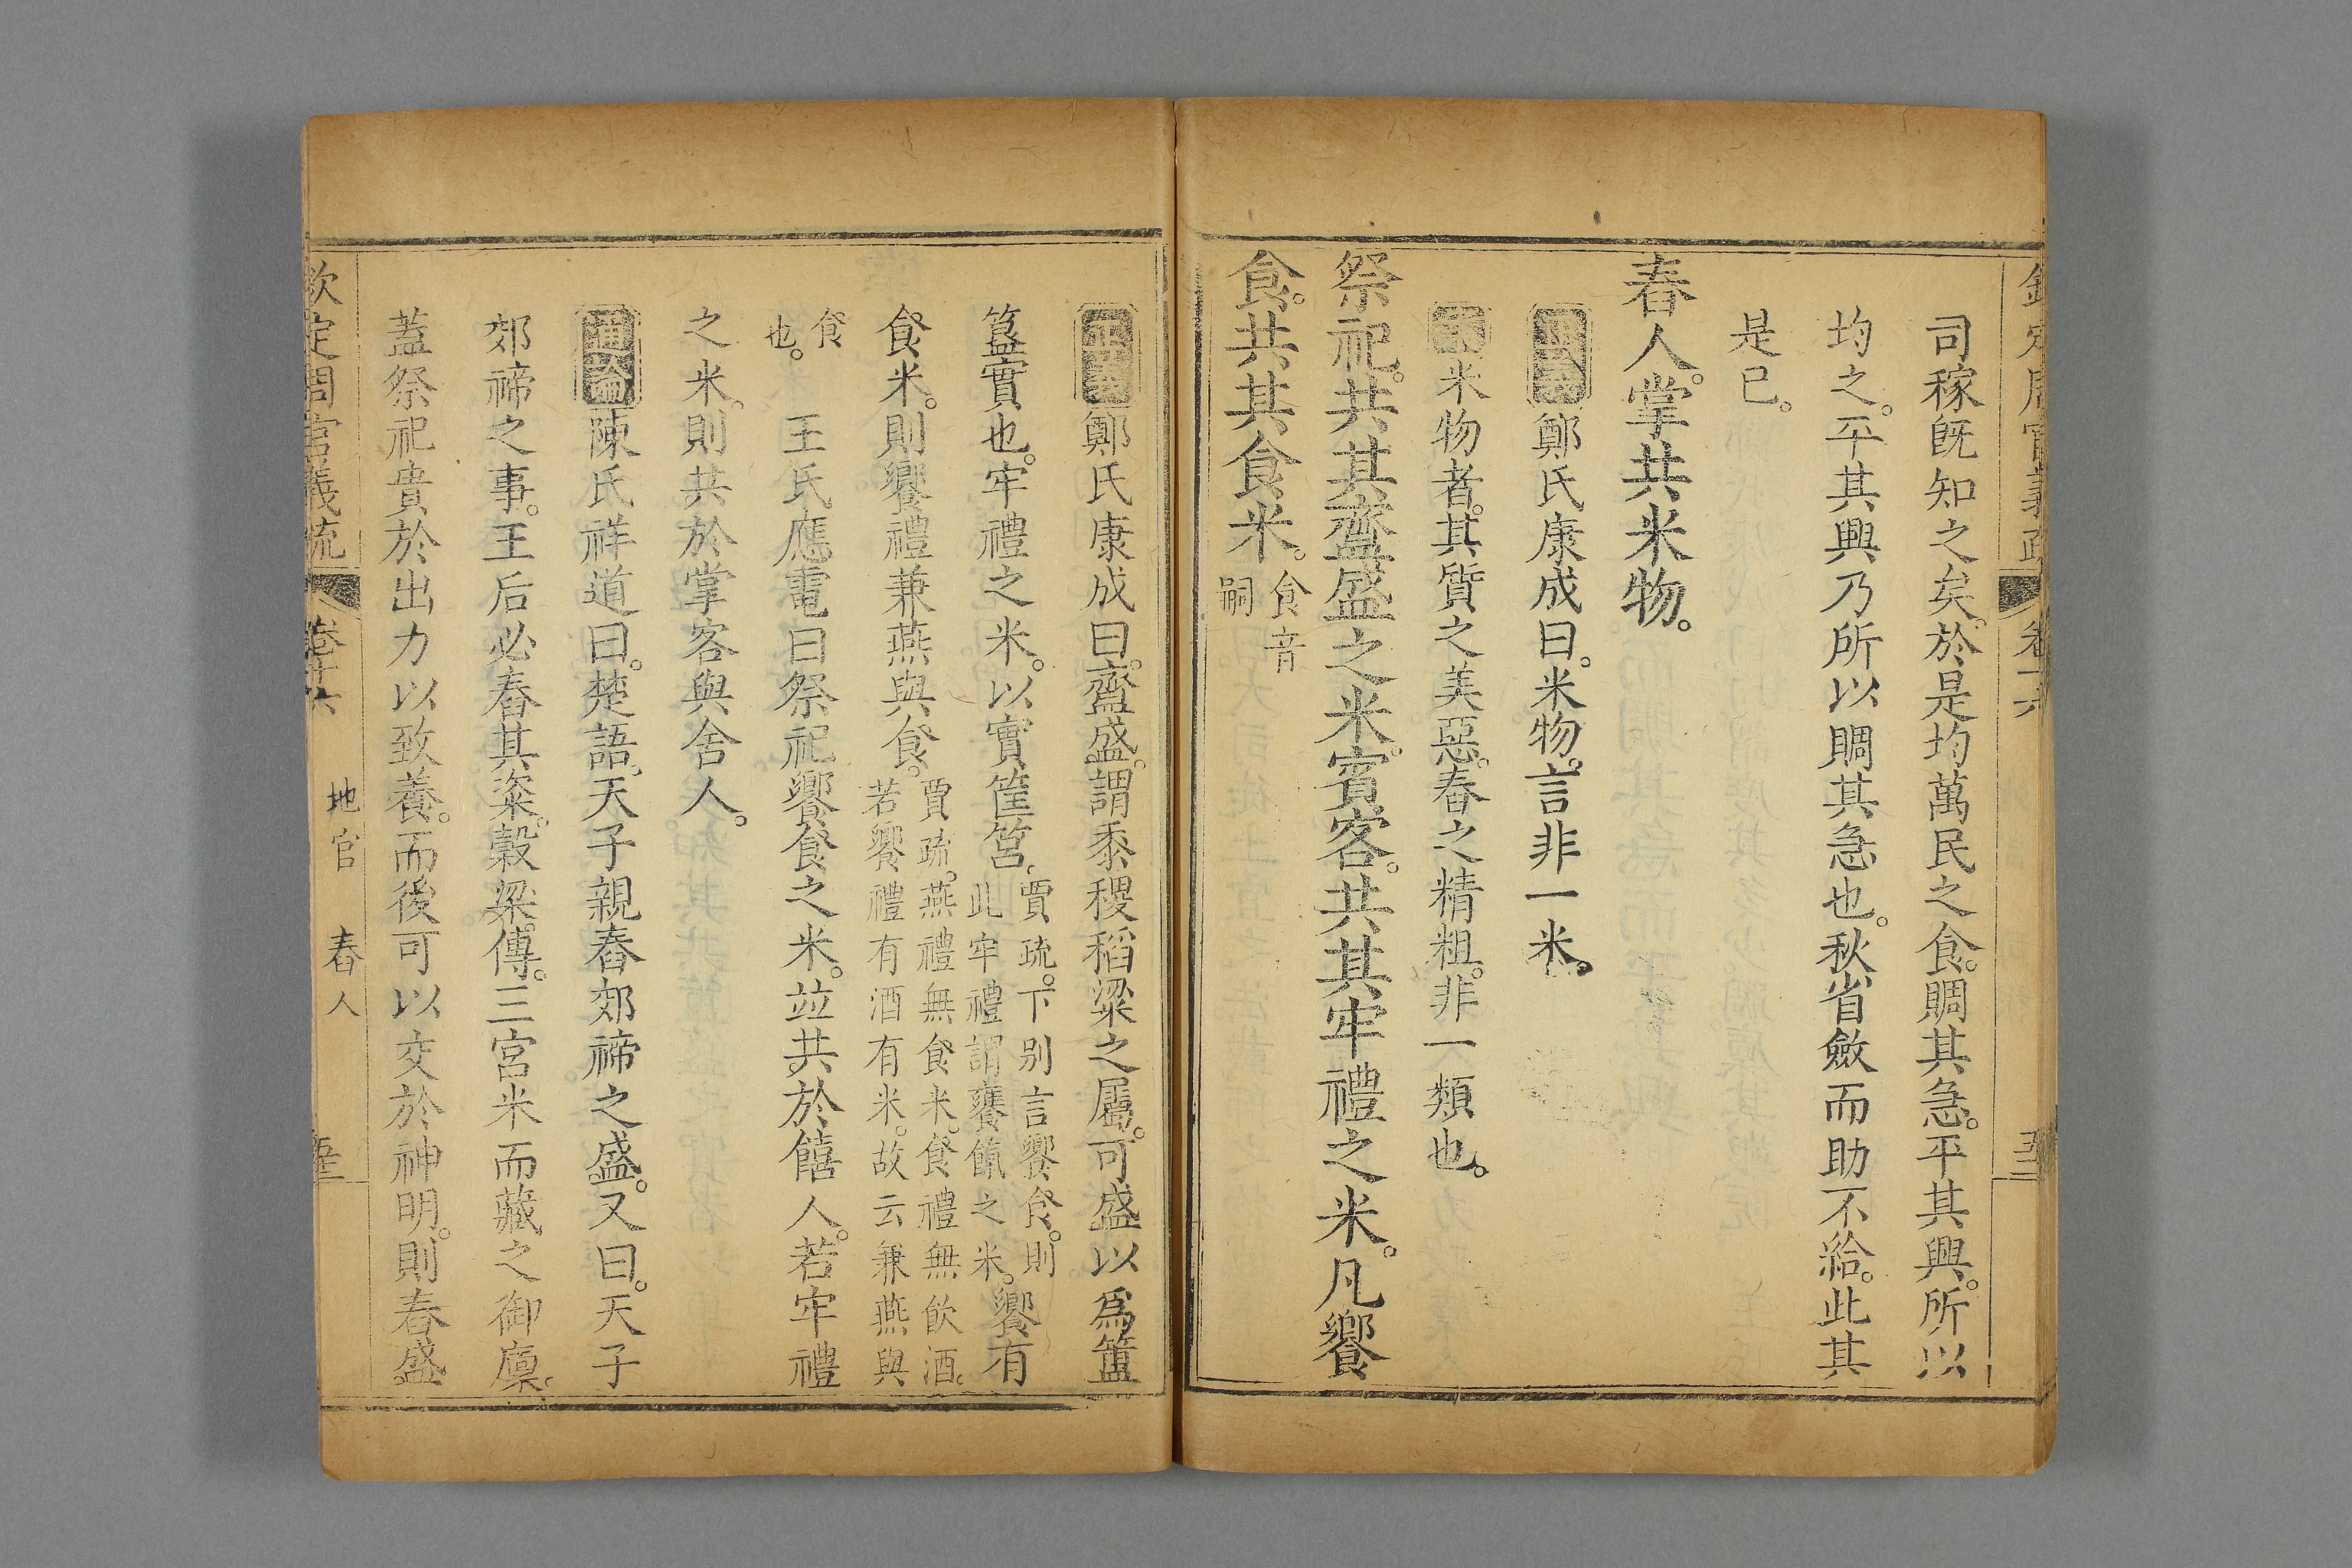 司稼旣知之矣。於是均萬民之食。賙其急。平其興。所以
均之。平其興乃所以賙其急也。秋省斂而助不給。此其
是已。
舂人。掌共米物。
正義鄭氏康成曰。米物。言非一米。
案米物者。其質之美惡。舂之精粗。非一類也。
祭祀。共其齍盛之米。賓客。共其牢禮之米。凡饗
食。共其食米。食音
嗣
正義鄭氏康成曰。齍盛。謂黍稷稻粱之屬。可盛以爲簠
簋實也。牢禮之米。以實筐筥。賈疏。下別言饗食。則
此牢禮謂饔餼之米。饗有
食米。則饗禮兼燕與食。賈疏。燕禮無食米。食禮無飲酒。
若饗禮有酒有米。故云兼燕與
食
也。 王氏應電曰祭祀饗食之米。竝共於饎人。若牢禮
之米。則共於掌客與舍人。
通論陳氏祥道曰。楚語。天子親舂郊禘之盛。又曰。天子
郊禘之事。王后必舂其粢。榖梁傳。三宮米而藏之御廩。
蓋祭祀貴於出力以致養。而後可以交於神明。則舂盛
欽定周官義疏 卷十六 地官 舂人